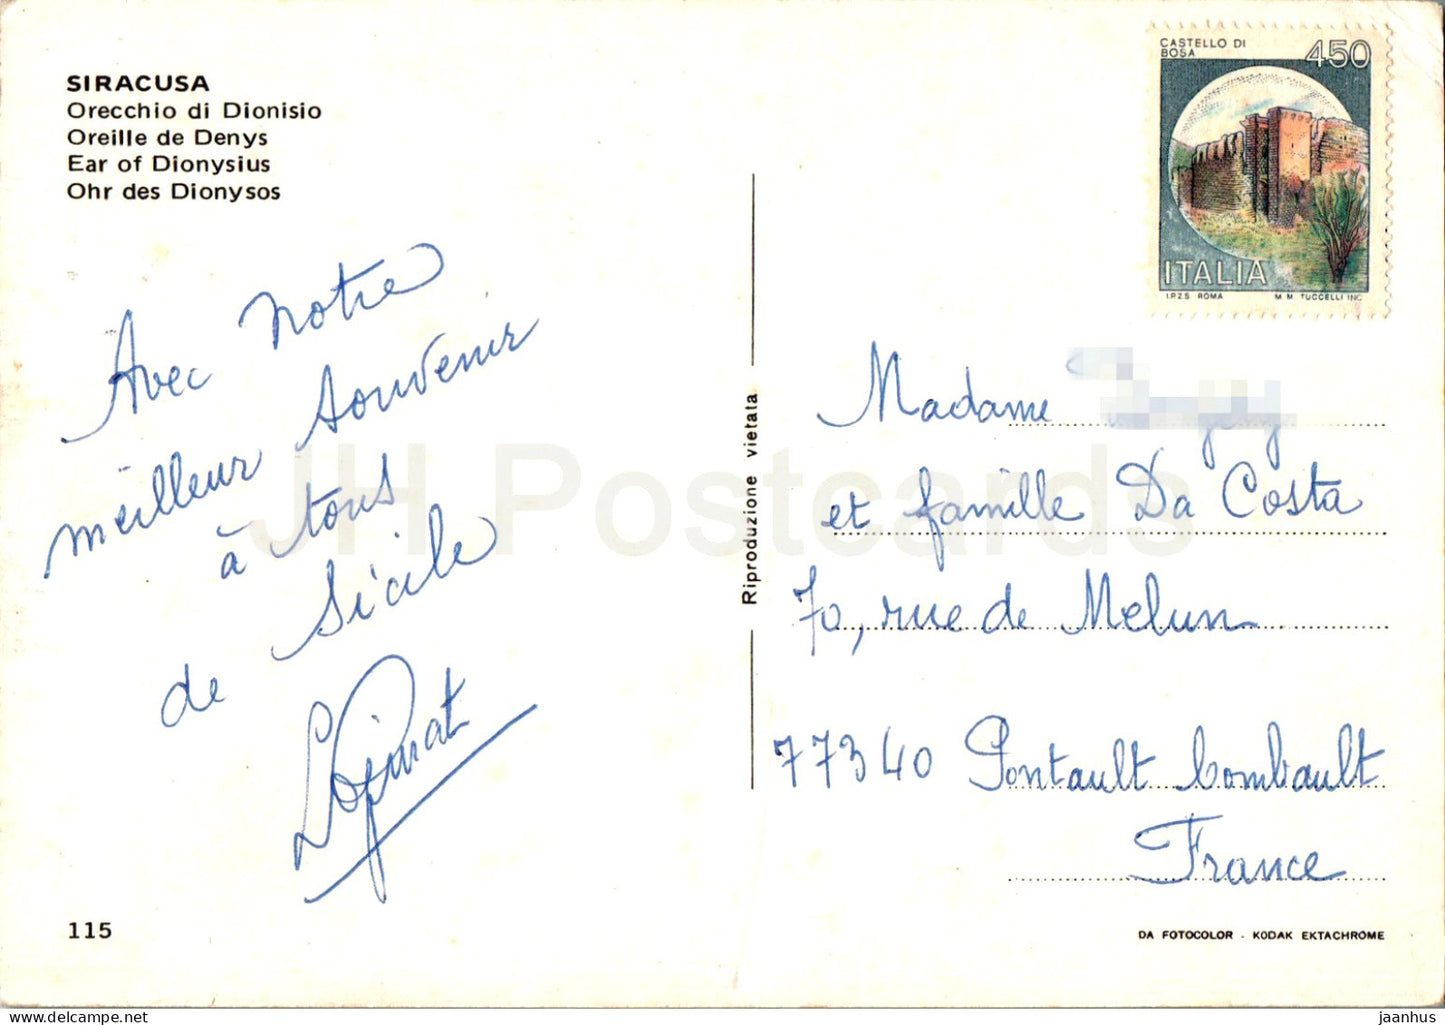 SIRACUSA
Orecchio di Dionisio
Oreille de Denys
Ear of Dionysius
Ohr des Dionysos
Avec notre
meilleur souvenir
à tous
de Sicile
115
Riproduzione vietata
CASTELLO DI
BOSA
450
ITALIA
I.P.Z.S. ROMA M.M. TUCCELLI INC.
Madame
et famille Da Costa
70, rue de Melun
77340 Pontault Combault
France
DA FOTOCOLOR - KODAK EKTACHROME
JH Postcards
jaanhus
delcampe.net